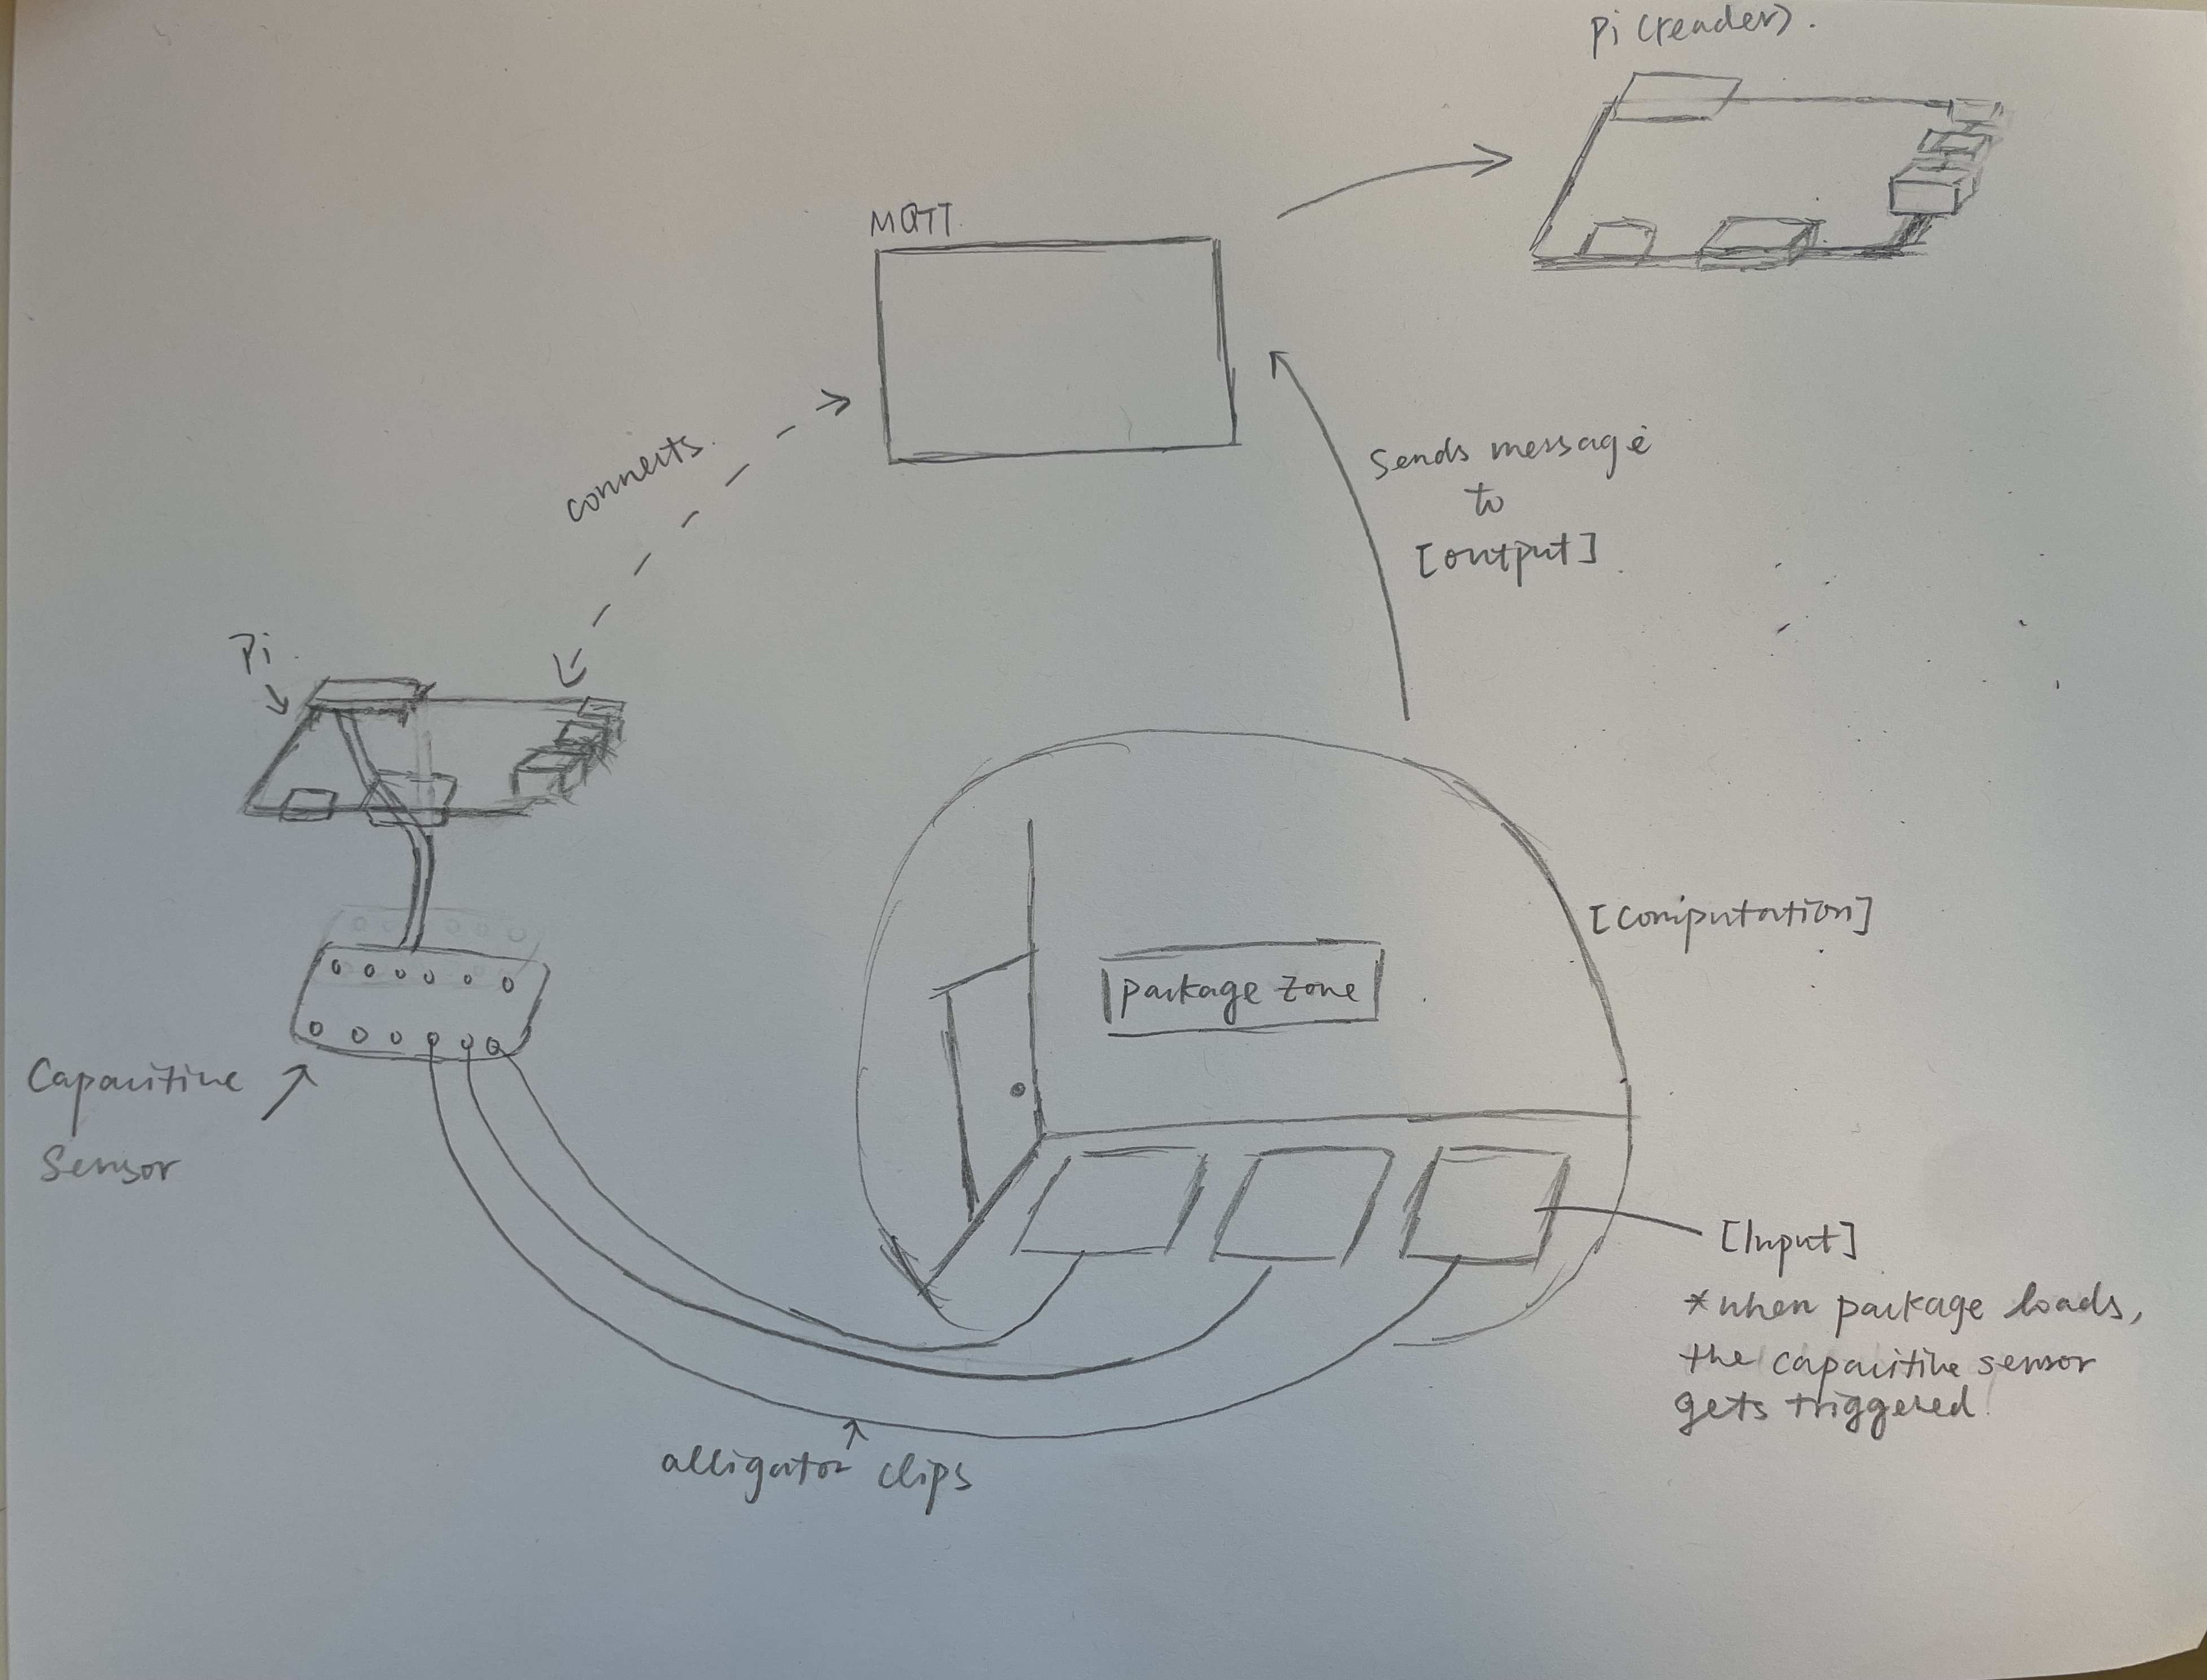 Pi (reader).
MQTT
connects.
Sends message
to
[output]
Pi
[Computation]
package zone
Capacitive
Sensor
[Input]
*when package loads,
the capacitive sensor
gets triggered.
alligator clips